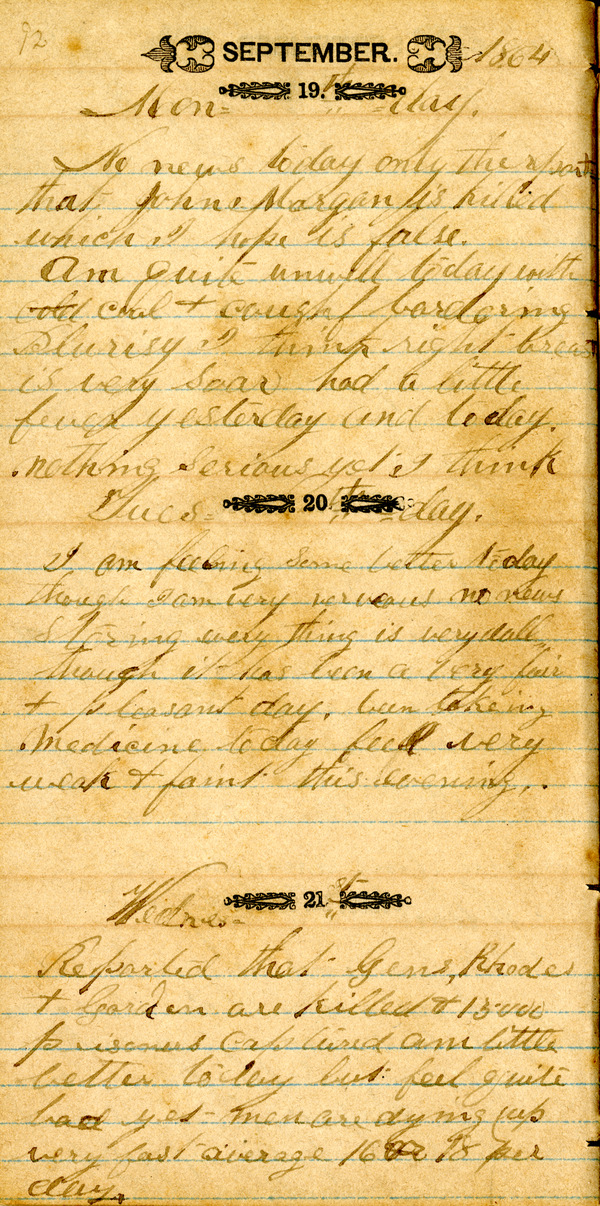 92
SEPTEMBER. 1864
19.th
Mon= =day.
No news today only the report
that John Morgan is killed
which I hope is false.
Am quite unwell today with
cold & cough bordering
Plurisy I think right breast
is very soar had a little
fever yesterday and today.
nothing serious yet I think
Tues= 20.th =day.
I am feeling some better today
though I am very nervous no news
stiring every thing is very dull
though it has been a very fair
& pleasant day. been takeing
Medicine today feel very
weak & faint this evening.
Wednes= 21st
Reported that Gens, Rhodes
& Gordon are killed & 15000
prisoners captured am little
better today but feel quite
bad yet men are dying up
very fast average 16 or 18 per
day.